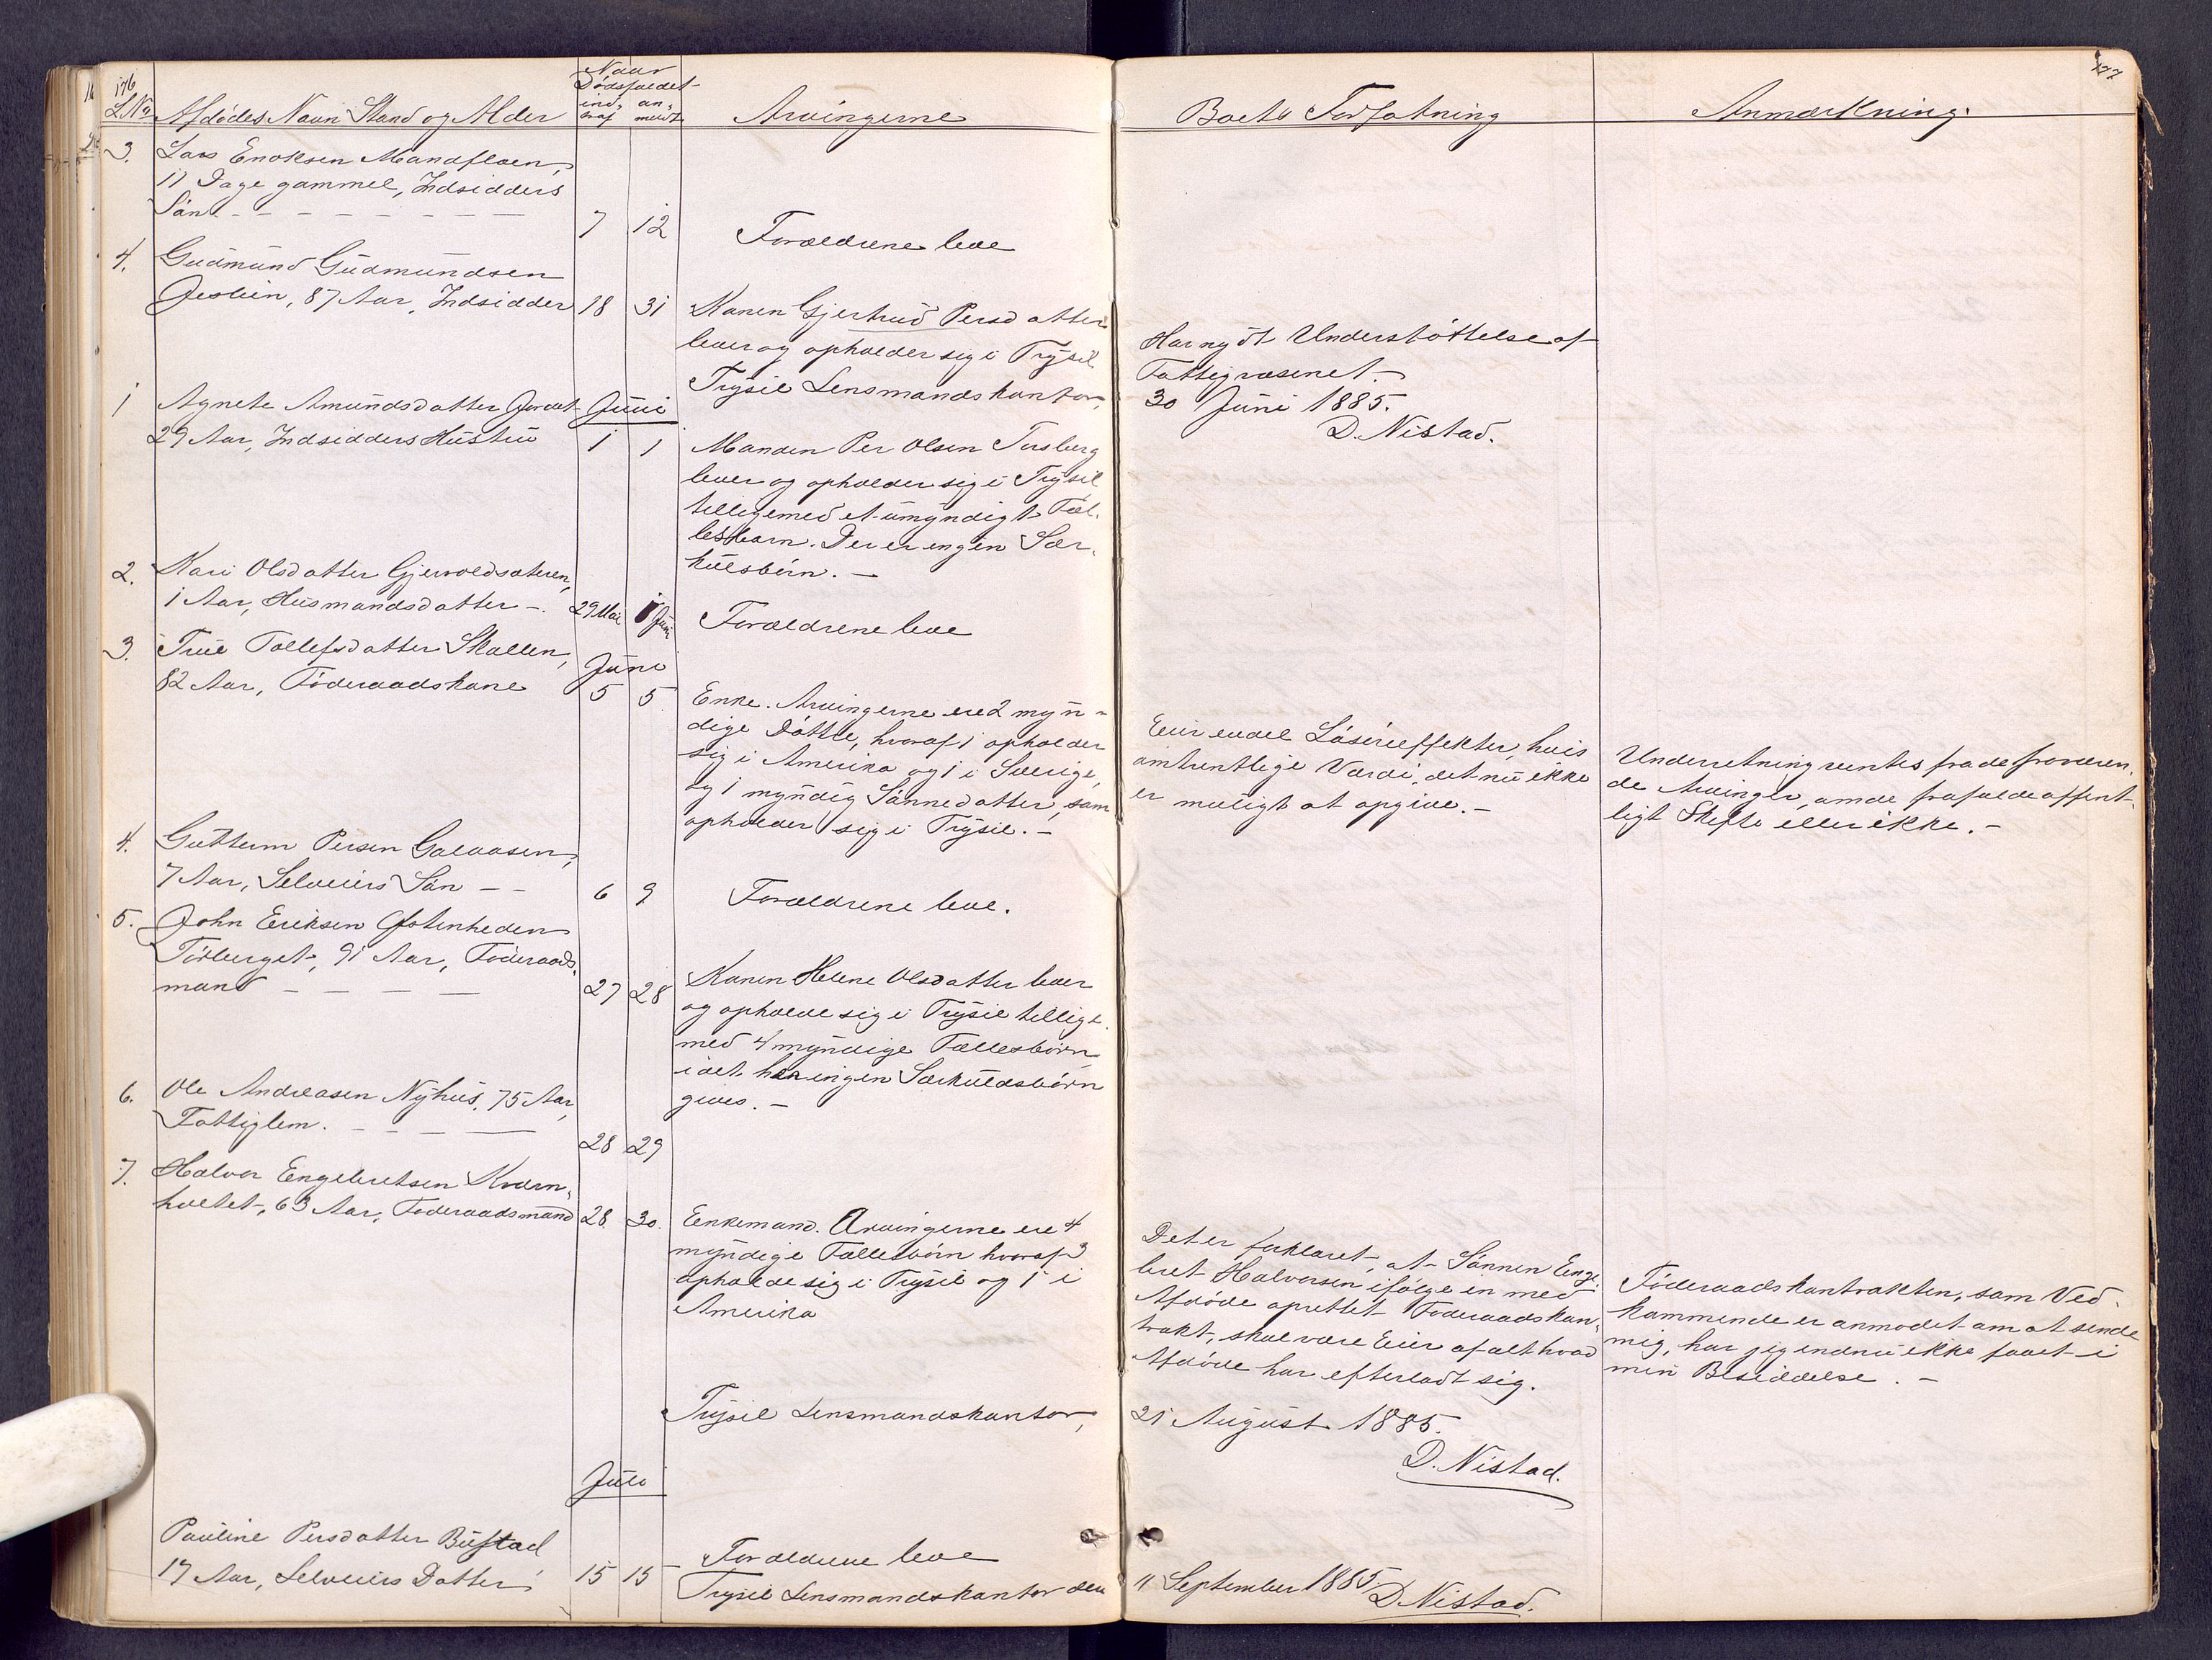 176
177
L.No. Afdødes Navn Stand og Alder
Naar
Dødsfaldet
ind- an-
traf meldt
Arvingerne
Boets Forfatning
Anmærkning.
3. Lars Enoksen Mandfloen,
11 Dage gammel, Indsidders
Søn. 7 12 Forældrene leve
4. Gudmund Gudmundsen
87 Aar, Indsidder 18 31 Konen Gjertrud Persdatter
lever og opholder sig i Trysil
Trysil Lensmandskontor,
Har nydt Understøttelse af
Fattigvæsenet.
30 Juni 1885.
D. Nistad.
1 Agnete Amundsdatter
Juni
29 Aar, Indsidders Hustru 1 1 Manden Per Olsen Torsberg
lever og opholder sig i Trysil
tilligemed et umyndigt Fæl-
lesbarn. Der er ingen Sær-
kulsbørn. —
2. Kari Olsdatter Gjervoldsæteren,
1 Aar, Husmandsdatter —. 29 Mai 1 Juni Forældrene leve
3. True Tollefsdatter Skallen,
Juni
82 Aar, Føderaadskone 5 5 Enke. Arvingerne ere 2 myn-
dige Døttre, hvoraf 1 opholder
sig i Amerika og 1 i Sverige,
og 1 myndig Sønnedatter, som
opholder sig i Trysil. —
Eier endel Løsøreeffekter, hvis
omtrentlige Værdi, det nu ikke
er muligt at opgive. —
Underretning ventes fra de fraværen-
de Arvinger, om de forlange offent-
ligt Skifte eller ikke. —
4. Guttorm Persen Galaasen,
7 Aar, Selveiers Søn — — 6 9 Forældrene leve.
5. John Eriksen Østenheden
Törberget, 91 Aar, Føderaads-
mand 27 28 Konen Helene Olsdatter lever
og opholde sig i Trysil tillige-
med 4 myndige Fællesbørn
idet her ingen Særkuldsbørn
gives. —
6. Ole Andreasen Nyhus, 75 Aar,
Fattiglem. 28 29
7. Halvor Engebretsen Kværn-
holtet, 63 Aar, Føderaadsmand 28 30. Enkemand. Arvingerne ere 4
myndige Fællesbørn hvoraf 3
opholde sig i Trysil og 1 i
Amerika
Det er forklaret, at Sønnen Enge-
bret Halvorsen ifølge en med
Afdøde oprettet Føderaadskon-
trakt, skal være Eier af alt hvad
Afdøde har efterladt sig.
Føderaadskontrakten, som Ved-
kommende er anmodet om at sende
mig, har jeg endnu ikke faaet i
min Besiddelse. —
Trysil Lensmandskontor, 21 August 1885.
D. Nistad.
Juli
Pauline Persdatter Bustad
17 Aar, Selveiers Datter 15 15 Forældrene leve
Trysil Lensmandskontor den 11 September 1885 D. Nistad.